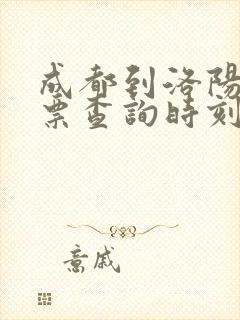 成都到洛陽
票查詢時刻
意戚